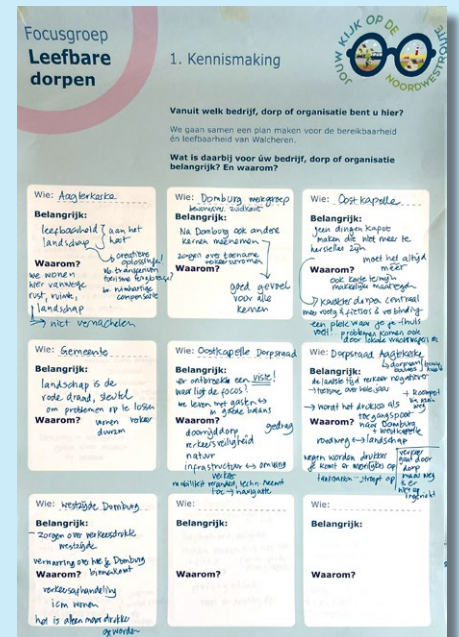 Focusgroep
Leefbare
dorpen
1. Kennismaking
JOUW KIJK OP DE
NOORDWESTROUTE
Vanuit welk bedrijf, dorp of organisatie bent u hier?
We gaan samen een plan maken voor de bereikbaarheid
én leefbaarheid van Walcheren.
Wat is daarbij voor úw bedrijf, dorp of organisatie
belangrijk? En waarom?
Wie: Aagtekerke
Belangrijk:
leefbaarheid
landschap
aan het
hart
creatieve
oplossing!
Waarom?
we wonen
hier vanwege
rust, ruimte,
landschap
niet vernachelen
compensatie
Wie: Domburg werkgroep
Belangrijk:
Na Domburg ook andere
kernen meenemen
zorgen over toename
verkeersstromen
Waarom?
goed gevoel
voor alle
kernen
Wie: Oostkapelle
Belangrijk:
geen dingen kapot
maken die niet meer te
herstellen zijn
moet het altijd
meer
Waarom?
ook korte termijn
makkelijke maatregelen
karakter dorpen centraal
meer voetg & fietsers & verbinding
een plek waar je je thuis
voelt
problemen komen ook
Wie: Gemeente
Belangrijk:
landschap is de
rode draad, sleutel
om problemen op te lossen
Waarom?
wonen
Wie: Oostkapelle Dorpsraad
Belangrijk:
er ontbreekt een visie!
waar ligt de focus?
we leven met gasten
in goede balans
Waarom?
gedrag
doorrijddorp
verkeersveiligheid
natuur
infrastructuur
verkeer
mobiliteit verandert, techn. neemt
toe → navigatie
Wie: Dorpsraad Aagtekerke
Belangrijk:
de laatste tijd verkeer negatiever
toerisme over hele jaar
wordt het drukker als
Waarom?
toegangspoort
naar Domburg
+ Westkapelle
rondweg ↔ landschap
wegen worden drukker
je komt er moeilijker op
verkeer
gaat door
dorp
maar weg
is er
niet op
ingericht
Wie: Westzijde Domburg
Belangrijk:
- zorgen over verkeersdrukte
westzijde
verwarring over hoe je Domburg
binnenkomt
Waarom?
verkeersafhandeling
icm wonen
het is alleen maar drukker
geworden
Wie:
Belangrijk:
Waarom?
Wie:
Belangrijk:
Waarom?